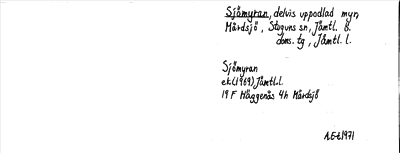 Sjömyran, delvis uppodlad myr,
Mårdsjö, Stuguns sn, Jämtl. ö.
doms. tg, Jämtl. l.
Sjömyran
ek (1969) Jämtl.l.
19 F Häggenås 4h Mårdsjö
1971